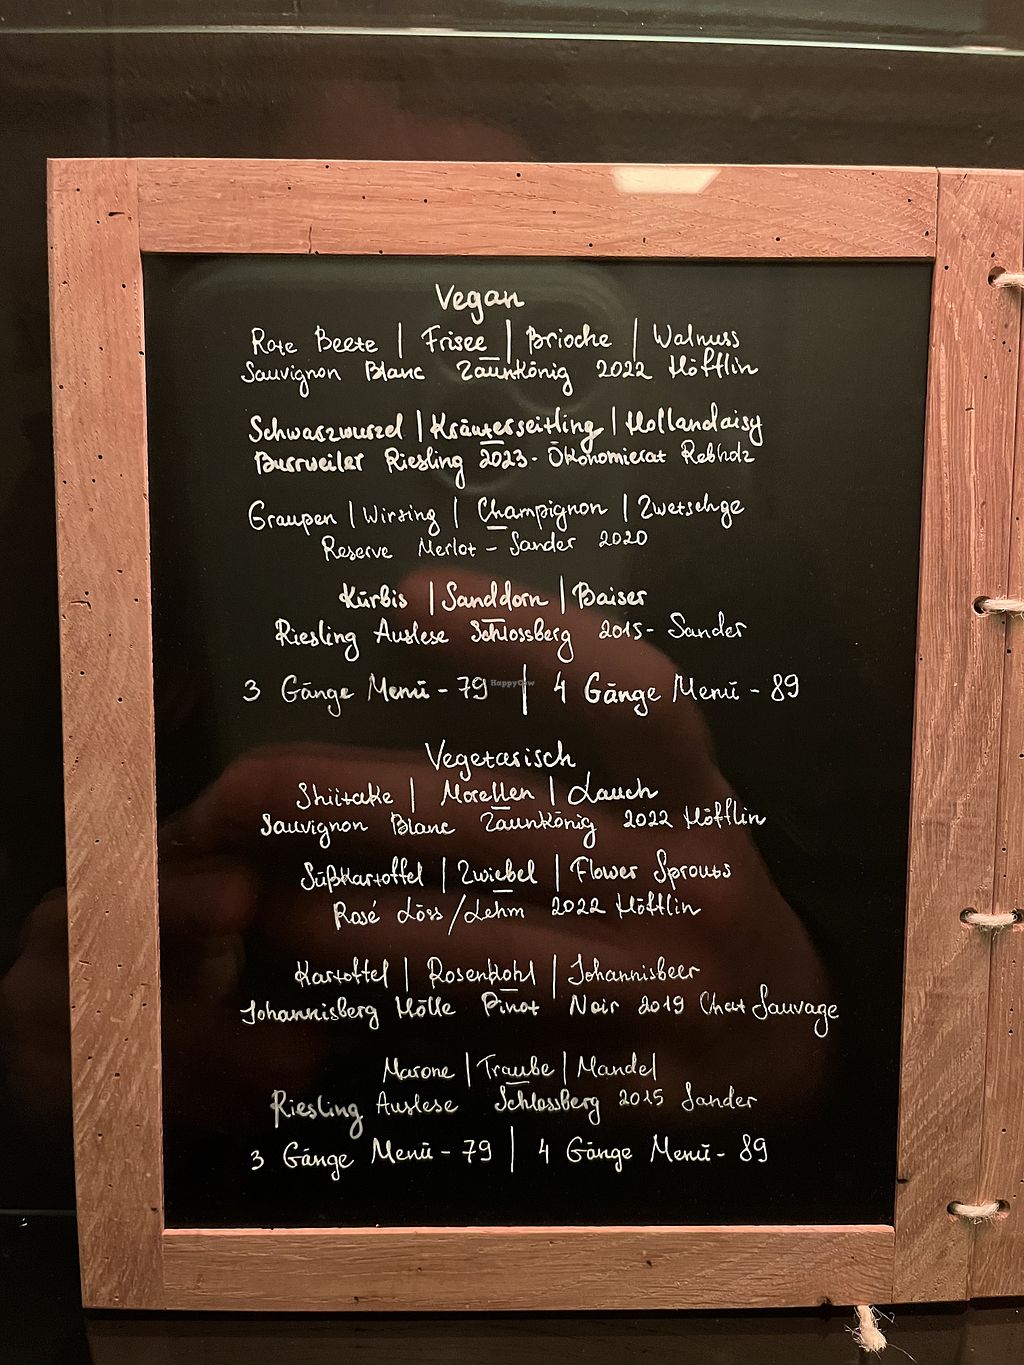 Vegan
Rote Beete | Frisee | Brioche | Walnuss
Sauvignon Blanc Zaunkönig 2022 Höfflin
Schwarzwurzel | Kräuterseitling | Hollandaisy
Burrweiler Riesling 2023 - Ökonomierat Rebholz
Graupen | Wirsing | Champignon | Zwetschge
Reserve Merlot - Sander 2020
Kürbis | Sanddorn | Baiser
Riesling Auslese Schlossberg 2015 - Sander
3 Gänge Menü - 79 | 4 Gänge Menü - 89
HappyCow
Vegetarisch
Shiitake | Morellen | Lauch
Sauvignon Blanc Zaunkönig 2022 Höfflin
Süßkartoffel | Zwiebel | Flower Sprouts
Rosé Löss/Lehm 2022 Höfflin
Kartoffel | Rosenkohl | Johannisbeer
Johannisberg Hölle Pinot Noir 2019 Chat Sauvage
Marone | Traube | Mandel
Riesling Auslese Schlossberg 2015 Sander
3 Gänge Menü - 79 | 4 Gänge Menü - 89